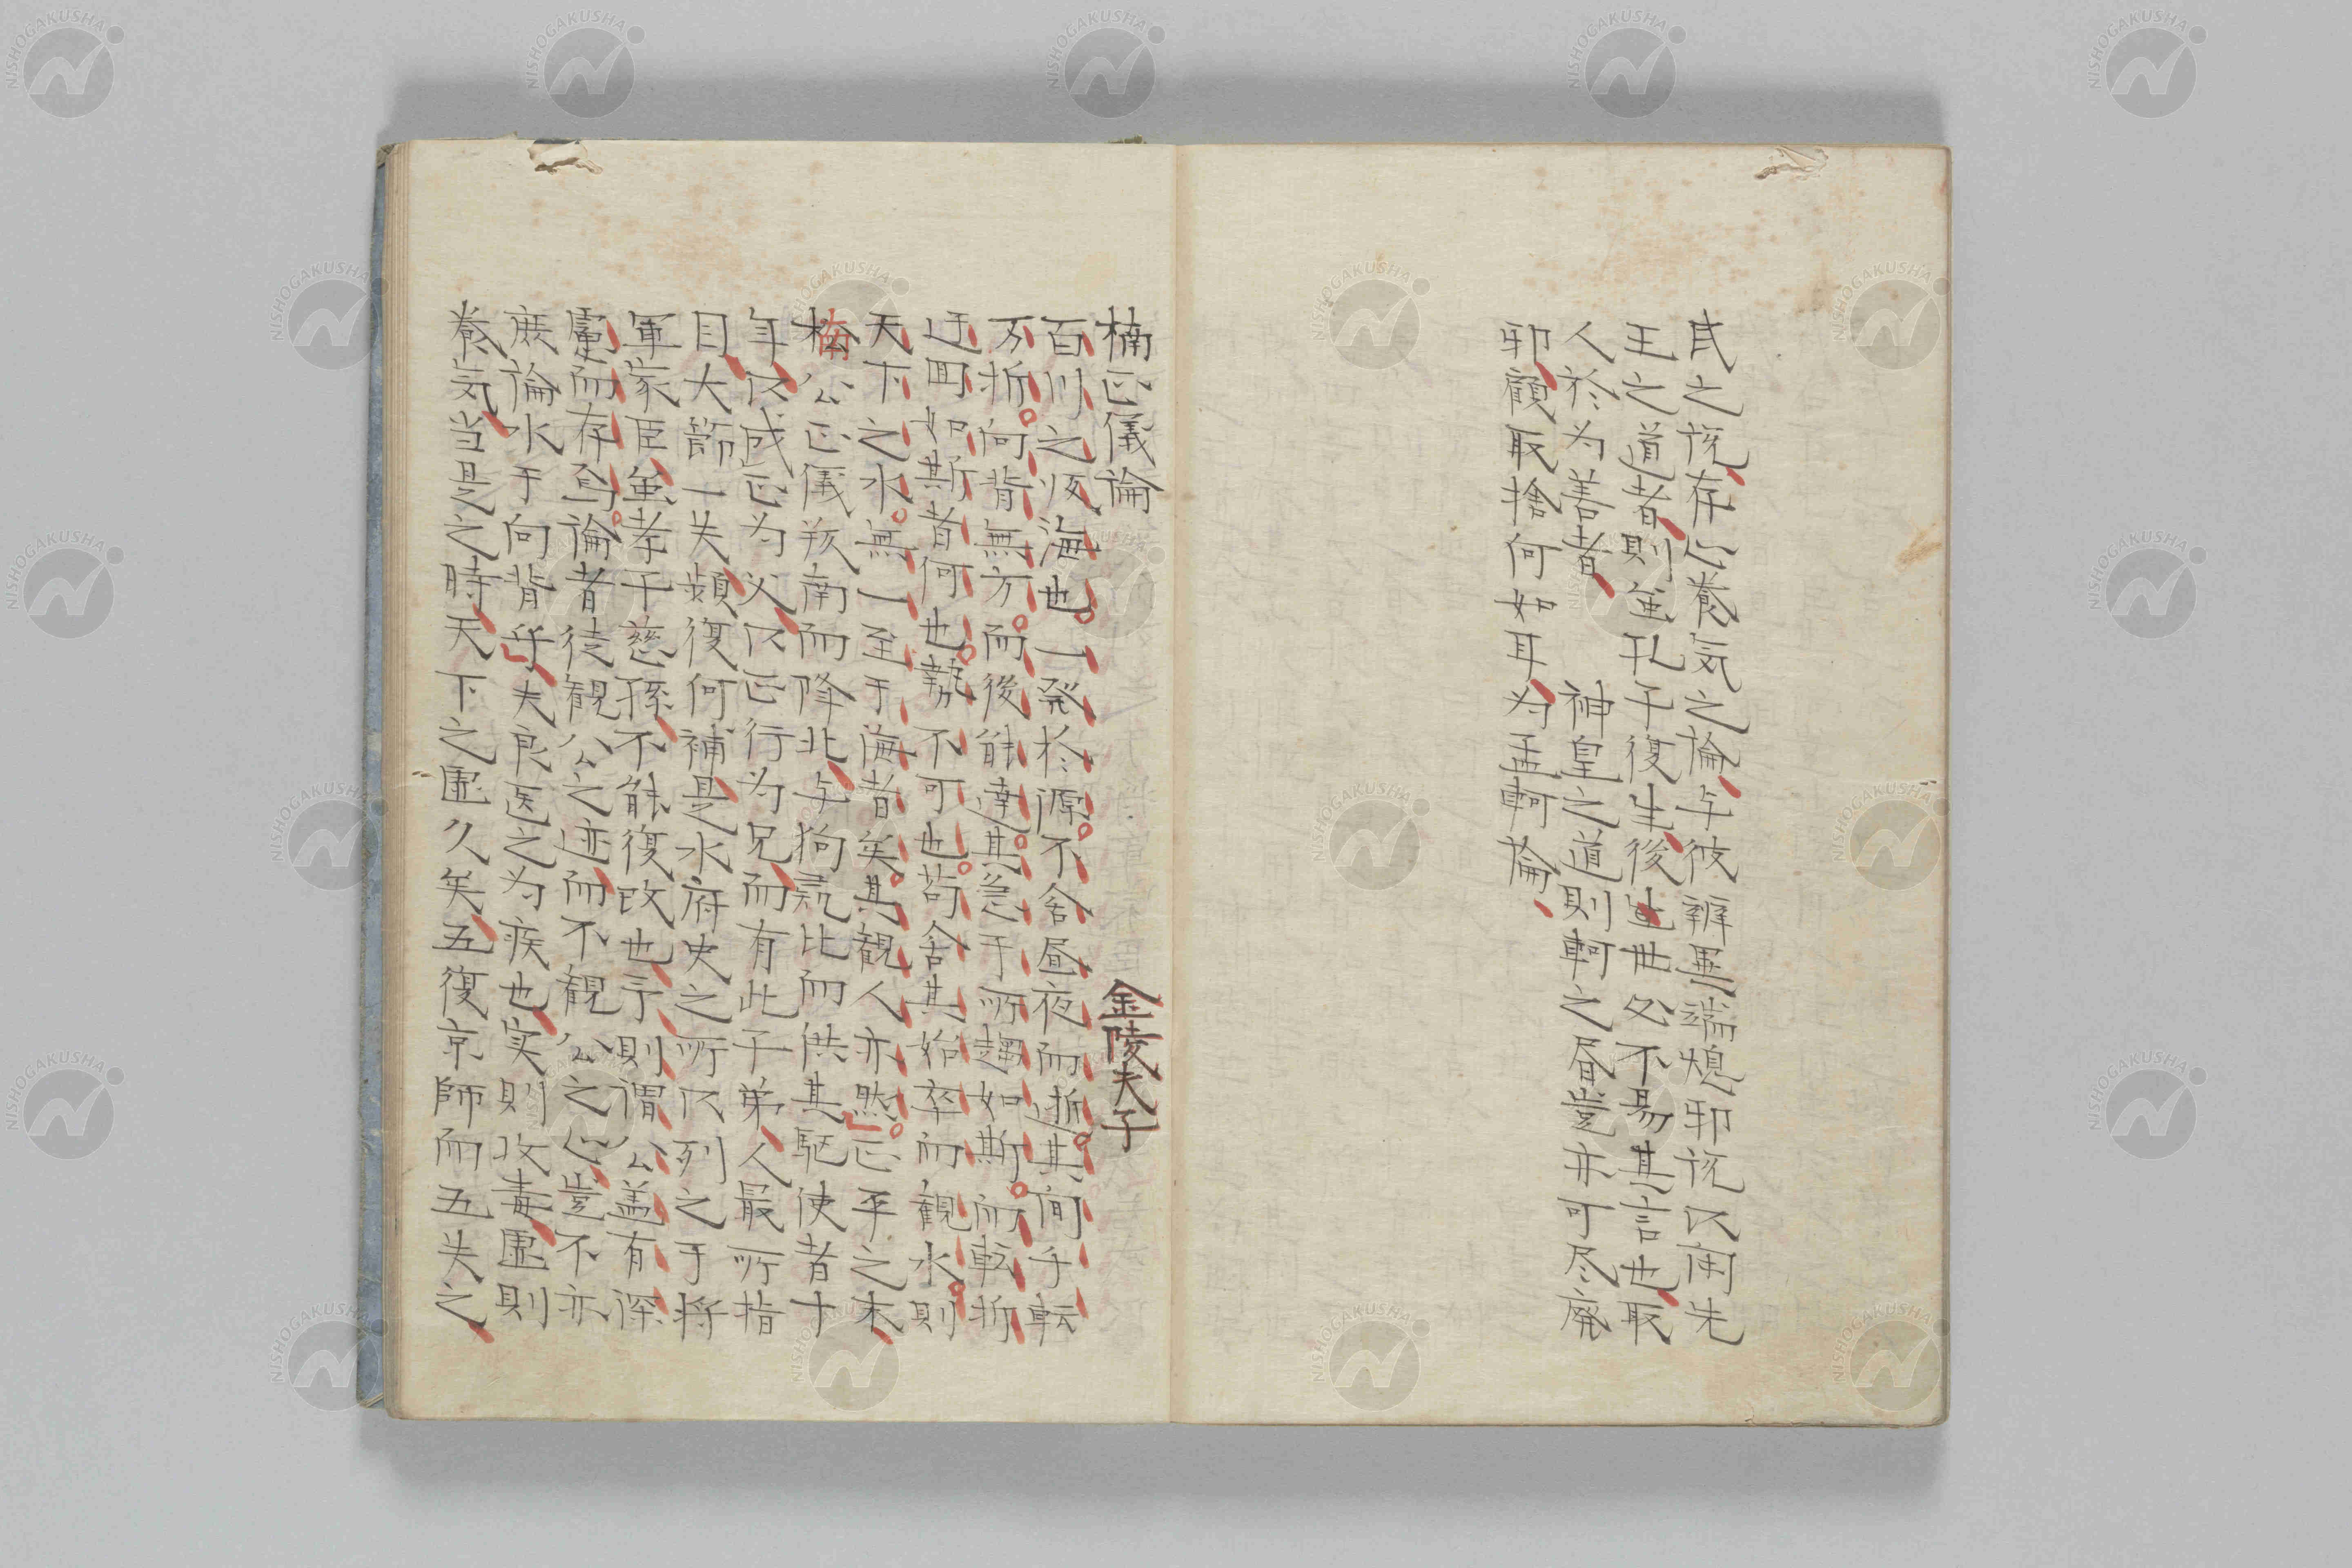 民之説存心養気之論与彼辨異端熄邪説以閑先
王之道者則虽孔子復生後世必不易其言也取
人於為善者 神皇之道則軻之昏豈亦可尽廃
邪顧取捨何如耳為孟軻論
楠正儀論 金陵夫子
百川之皈海也一発於源不舎昼夜而逝其間乎転
万折向背無方而後能達其急于所趨如斯而転折
迂回如斯者何也勢不可也苟舎其始卒而観水則
天下之水無一至于海者矣其観人亦然正平之末
楠公正儀族南而降北与狗彘比而供其駆使者十
年以成正為父以正行為兄而有此子弟人最所指
目大節一失頻復何補是水府史之所以列之于将
軍家臣虽孝子慈孫不能復改也予則謂公盖有深
慮而存焉論者徒観公之迹而不観公之心豈不亦
庶論水于向背乎夫良医之為疾也実則攻毒虚則
養気当是之時天下之虚久矣五復京師而五失之
NISHOGAKUSHA